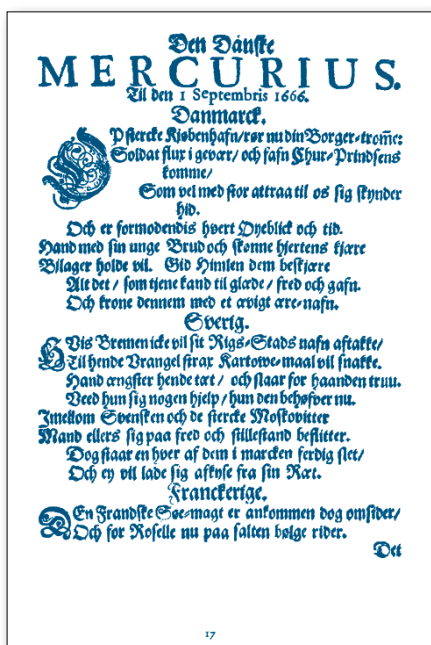 Den Danske
MERCURIUS.
Til den 1 Septembris 1666.
Danmarck.
OP stercke Kiøbenhafn/rør nu din Borger-trom̃e:
Soldat flux i gevær/ och fafn Chur-Prindsens
komme/
Som vel med stor attraa til os sig skynder
hid.
Och er formodendis hvert Øyeblick och tid.
Hand med sin unge Brud och skønne hjertens kjære
Bilager holde vil. Gid Himlen dem beskjære
Alt det/ som tjene kand til glæde/ fred och gafn.
Och krone dennem med et ævigt ære-nafn.
Sverig.
HVis Bremen icke vil sit Rigs-Stads nafn aftakke/
Til hende Vrangel strax Kartowe-maal vil snakke.
Hand ængster hende tæt/ och slaar for haanden truu.
Veed hun sig nogen hjelp/ hun den behøfver nu.
Imellom Svensken och de stercke Moskovitter
Mand ellers sig paa fred och stillestand beflitter.
Dog staar en hver af dem i marcken ferdig slet/
Och ey vil lade sig afkyse fra sin Ræt.
Franckerige.
DEn Frandske Søe-magt er ankommen dog omsider/
Och for Roselle nu paa salten bølge rider.
Det
17